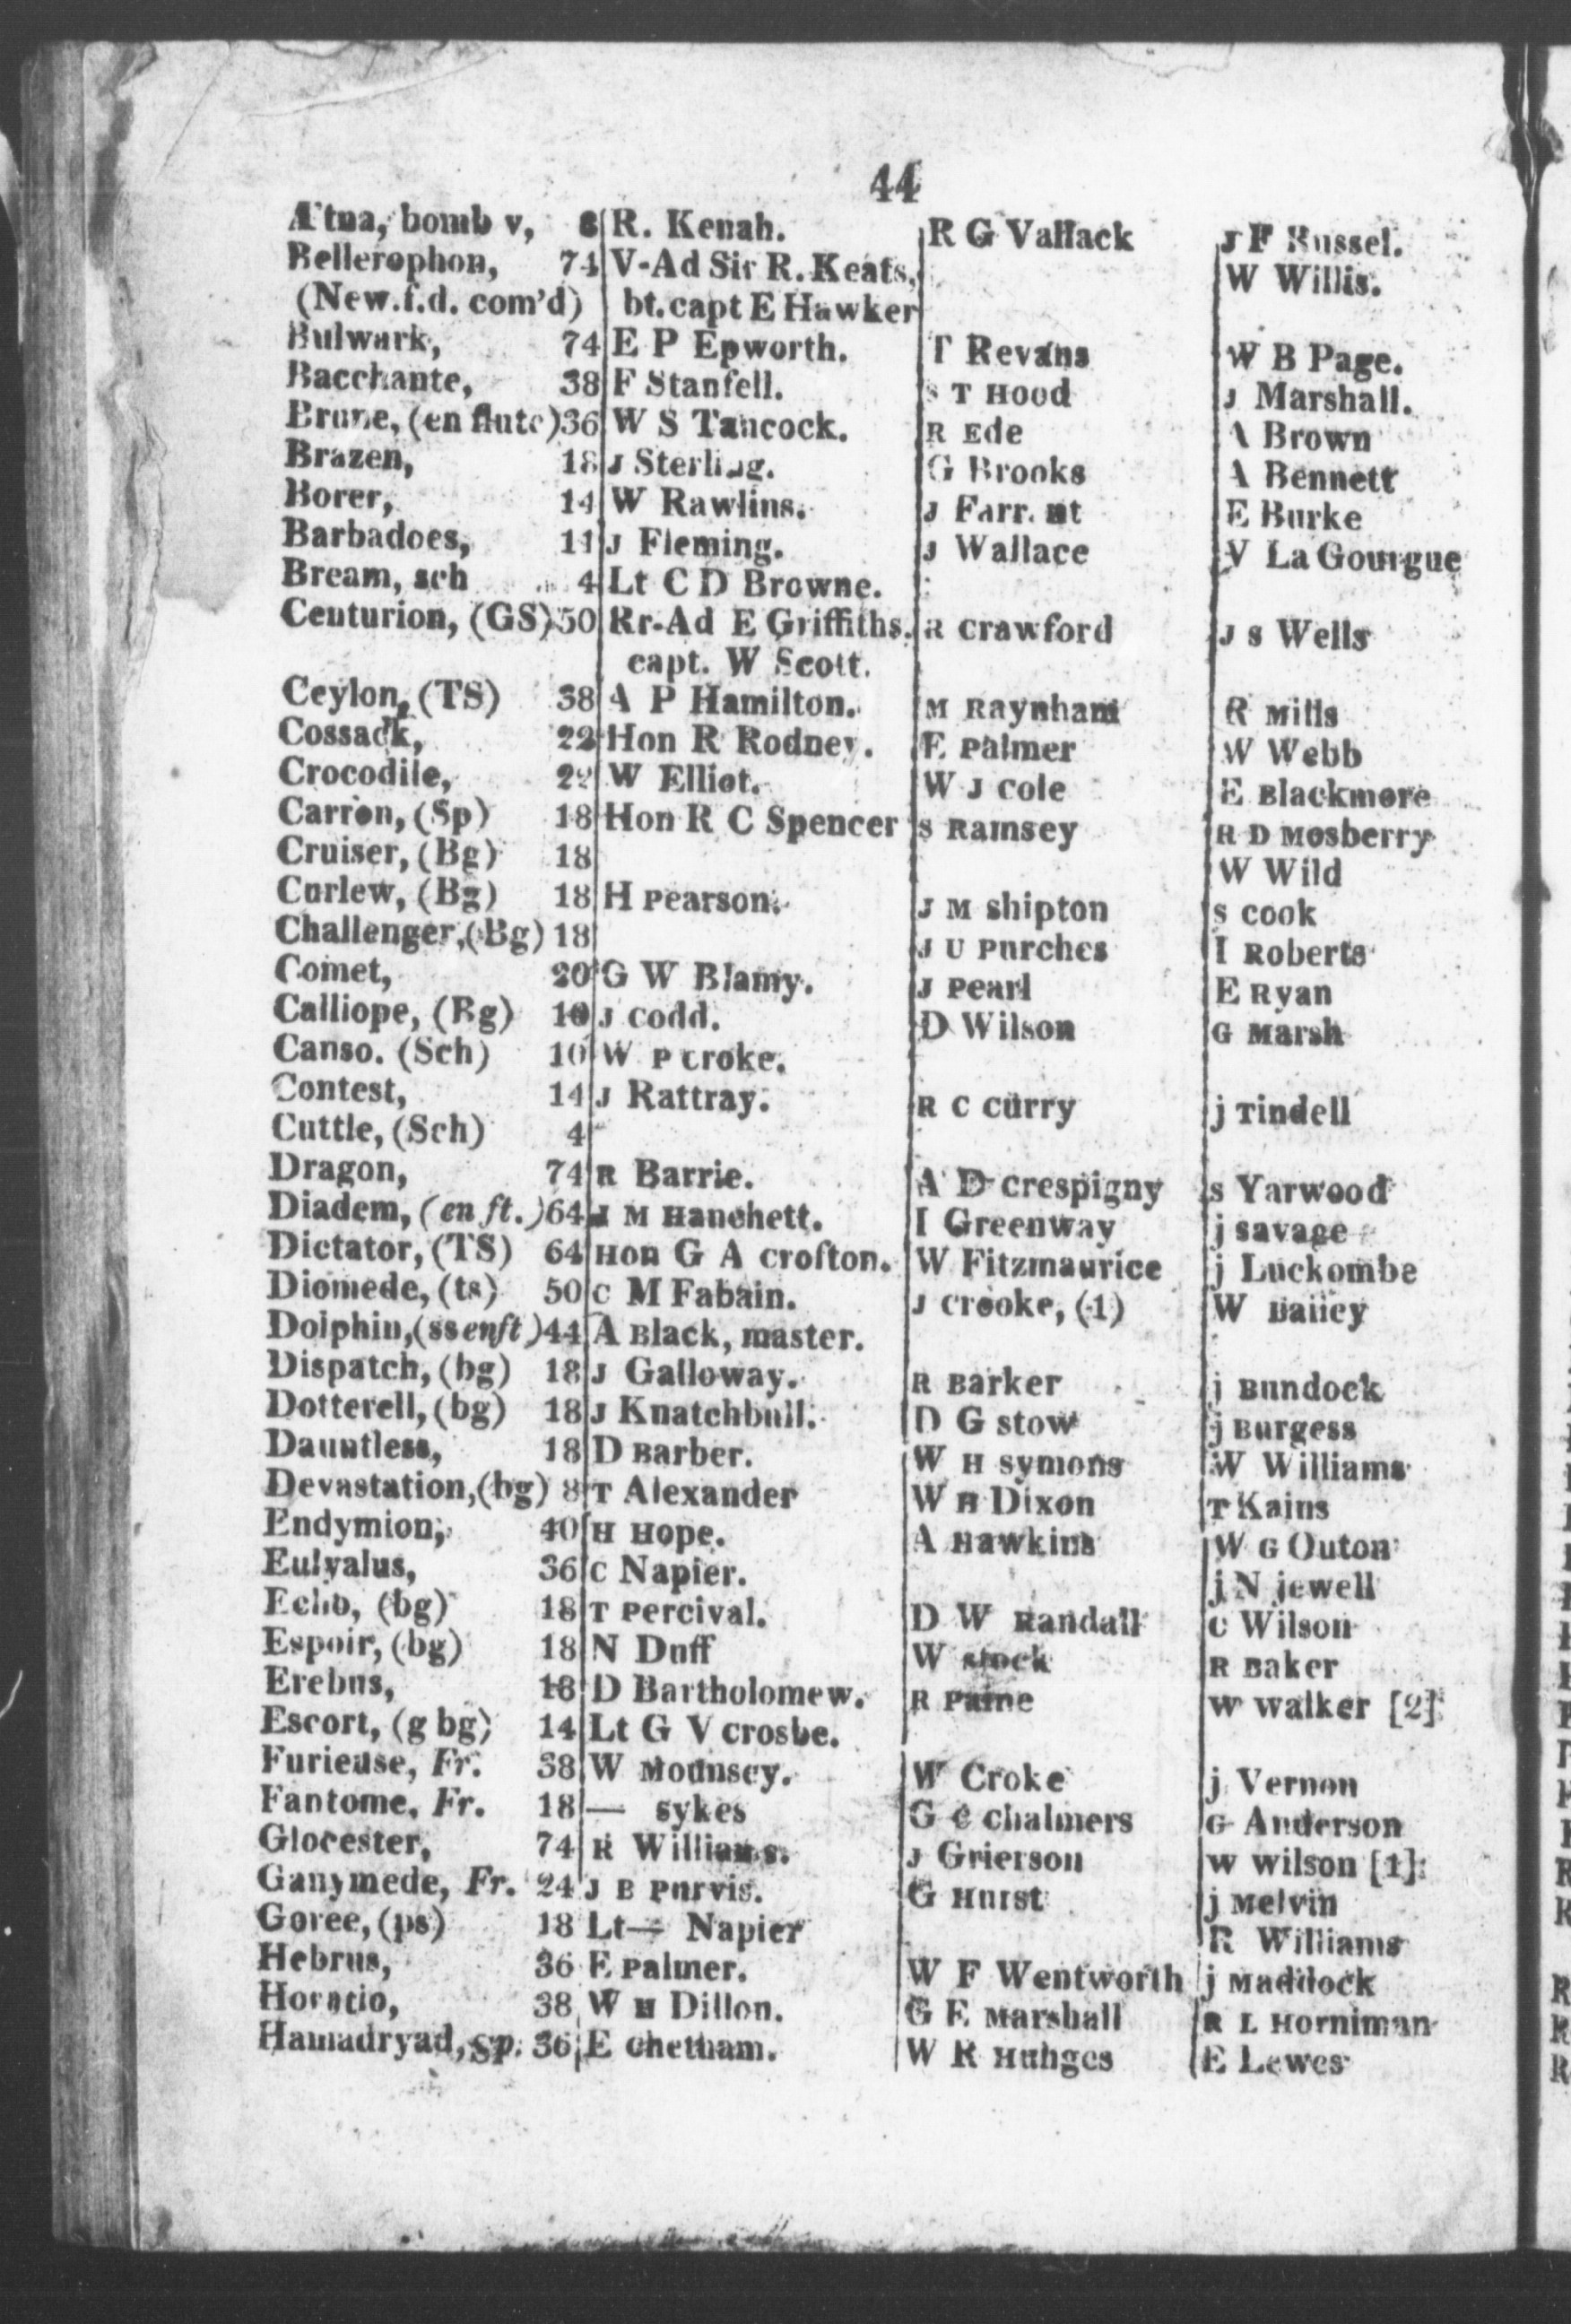 44
Ætna, bomb v, 8 R. Kenah. R G Vallack J F Russel.
Bellerophon, 74 V-Ad Sir R. Keats, W Willis.
(New.f.d. com'd) bt. capt E Hawker
Bulwark, 74 E P Epworth. T Revans W B Page.
Bacchante, 38 F Stanfell. S T Hood J Marshall.
Brune, (en flute) 36 W S Tancock. R Ede A Brown
Brazen, 18 J Sterling. G Brooks A Bennett
Borer, 14 W Rawlins. J Farrant E Burke
Barbadoes, 11 J Fleming. J Wallace V La Gourgue
Bream, sch 4 Lt C D Browne.
Centurion, (GS) 50 Rr-Ad E Griffiths. R Crawford J S Wells
capt. W Scott.
Ceylon, (TS) 38 A P Hamilton. M Raynham R Mills
Cossack, 22 Hon R Rodney. E Palmer W Webb
Crocodile, 22 W Elliot. W J Cole E Blackmore
Carron, (Sp) 18 Hon R C Spencer S Ramsey R D Mosberry
Cruiser, (Bg) 18 W Wild
Curlew, (Bg) 18 H Pearson. J M Shipton S Cook
Challenger, (Bg) 18 J U Purches I Roberts
Comet, 20 G W Blamy. J Pearl E Ryan
Calliope, (Bg) 10 J Codd. D Wilson G Marsh
Canso. (Sch) 10 W P Croke.
Contest, 14 J Rattray. R C Curry j Tindell
Cuttle, (Sch) 4
Dragon, 74 R Barrie. A D Crespigny S Yarwood
Diadem, (en ft.) 64 J M Hanchett. I Greenway j Savage
Dictator, (TS) 64 Hon G A Crofton. W Fitzmaurice j Luckombe
Diomede, (ts) 50 C M Fabain. J Crooke, (1) W Bailey
Dolphin, (ss en ft) 44 A Black, master.
Dispatch, (bg) 18 J Galloway. R Barker j Bundock
Dotterell, (bg) 18 J Knatchbull. D G Stow j Burgess
Dauntless, 18 D Barber. W H Symons W Williams
Devastation, (bg) 8 T Alexander W H Dixon T Kains
Endymion, 40 H Hope. A Hawkins W G Outon
Eulyalus, 36 C Napier. j N jewell
Echo, (bg) 18 T Percival. D W Randall C Wilson
Espoir, (bg) 18 N Duff W Stock R Baker
Erebus, 18 D Bartholomew. R Paine W Walker [2]
Escort, (g bg) 14 Lt G V Crosbe.
Furieuse, Fr. 38 W Mounsey. W Croke j Vernon
Fantome, Fr. 18 — Sykes G C Chalmers G Anderson
Glocester, 74 R Williams. J Grierson W Wilson [1]
Ganymede, Fr. 24 J B Purvis. G Hurst j Melvin
Goree, (ps) 18 Lt — Napier R Williams
Hebrus, 36 E Palmer. W F Wentworth j Maddock
Horatio, 38 W H Dillon. G E Marshall R L Horniman
Hamadryad, Sp. 36 E Chetham. W R Huhges E Lewes